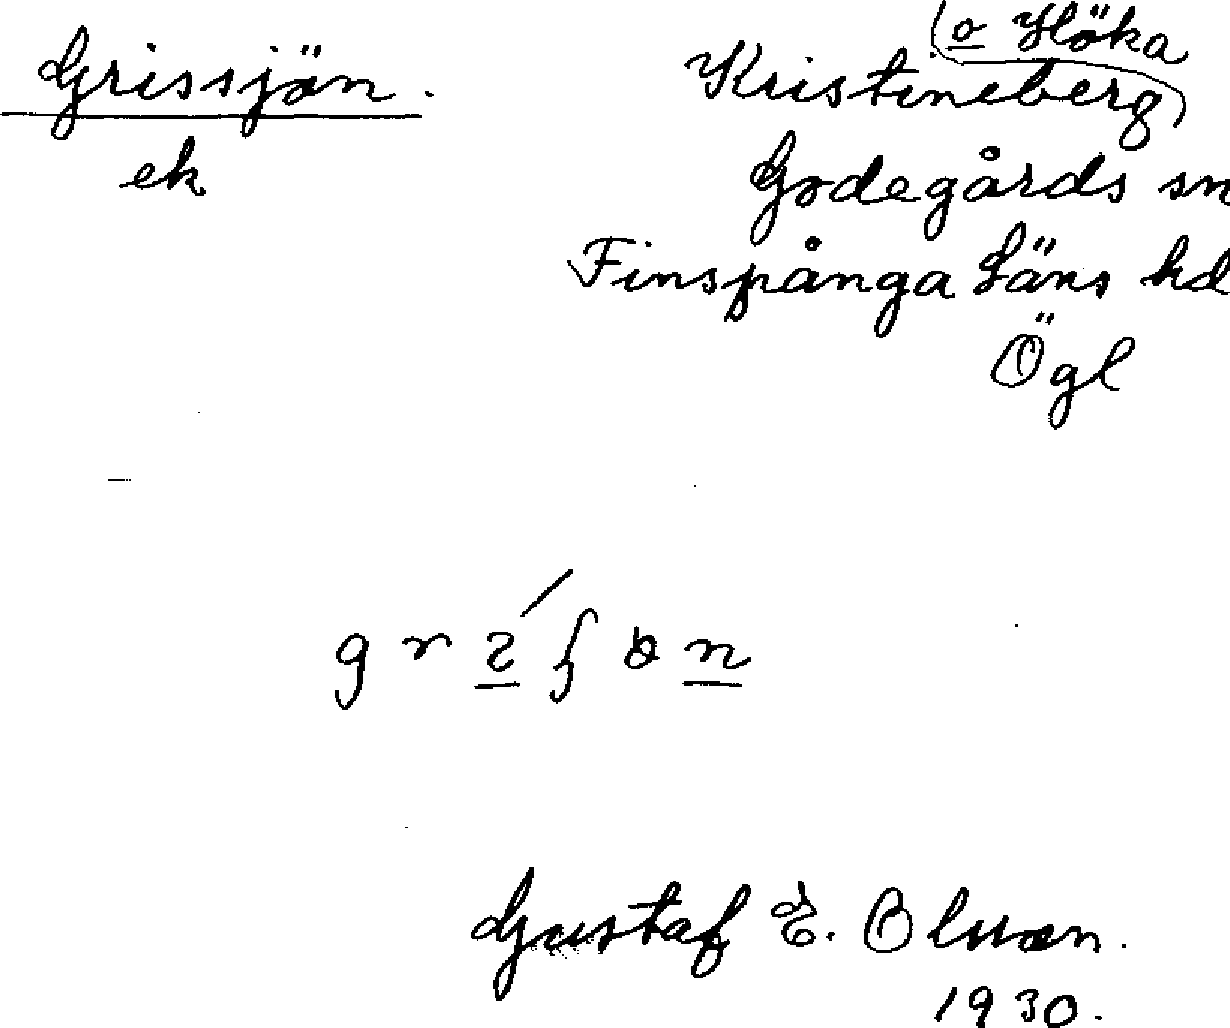 Grissjön.
ek
o Höka
Kristineberg
Godegårds sn
Finspånga Läns hd
Ögl
Gustaf E. Olsson.
1930.